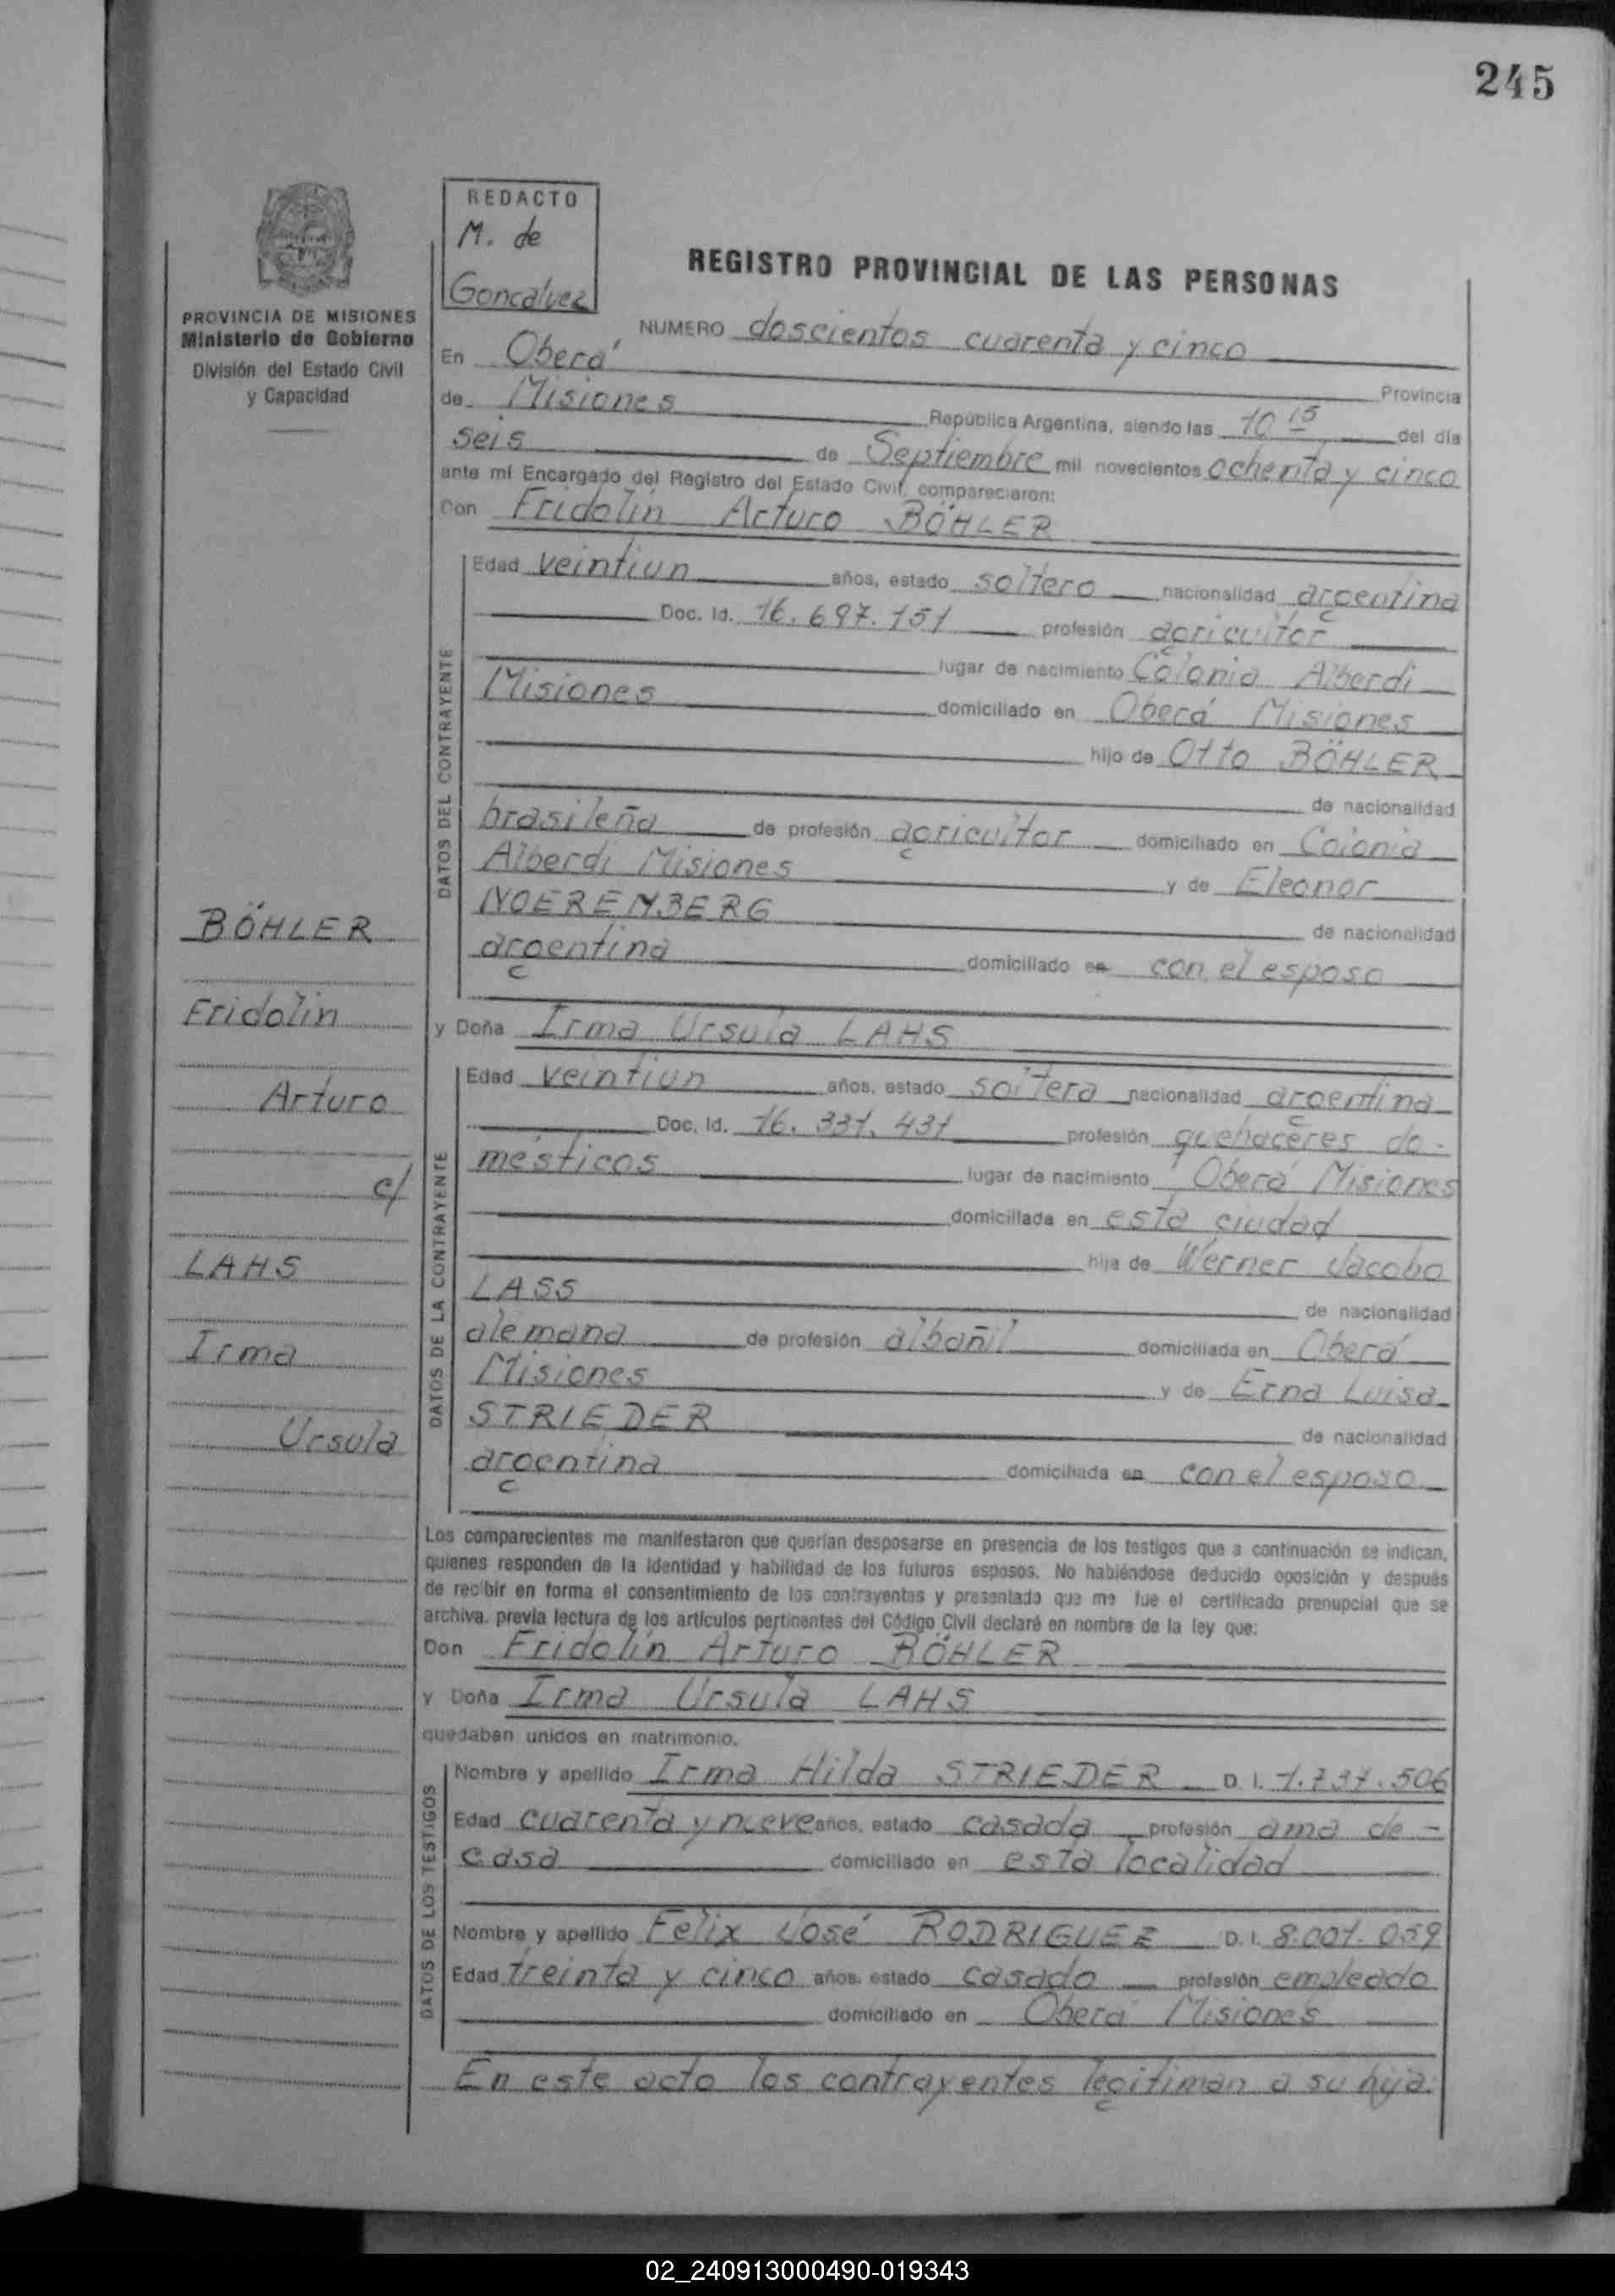 245
REDACTO
M. de
Goncalvez
REGISTRO PROVINCIAL DE LAS PERSONAS
PROVINCIA DE MISIONES
Ministerio de Gobierno
División del Estado Civil
y Capacidad
NUMERO doscientos cuarenta y cinco
En Oberá Provincia
de Misiones República Argentina, siendo las 10 15 del día
seis de Septiembre mil novecientos ochenta y cinco
ante mí Encargado del Registro del Estado Civil, comparecieron:
Don Fridolin Arturo BÖHLER
DATOS DEL CONTRAYENTE
Edad veintiun años, estado soltero nacionalidad argentina
Doc. Id. 16.697.151 profesión agricultor
lugar de nacimiento Colonia Alberdi
Misiones domiciliado en Oberá Misiones
hijo de Otto BÖHLER
de nacionalidad
brasileña de profesión agricultor domiciliado en Colonia
Alberdi Misiones y de Eleonor
NOERENBERG
de nacionalidad
argentina domiciliado en con el esposo
y Doña Irma Ursula LAHS
DATOS DE LA CONTRAYENTE
Edad veintiun años, estado soltera nacionalidad argentina
Doc. Id. 16.331.431 profesión quehaceres do-
mésticos lugar de nacimiento Oberá Misiones
domiciliada en esta ciudad
hija de Werner Jacobo
LASS
de nacionalidad
alemana de profesión albañil domiciliada en Oberá
Misiones y de Erna Luisa
STRIEDER
de nacionalidad
argentina domiciliada en con el esposo
BÖHLER
Fridolin
Arturo
c/
LAHS
Irma
Ursula
Los comparecientes me manifestaron que querían desposarse en presencia de los testigos que a continuación se indican,
quienes responden de la identidad y habilidad de los futuros esposos. No habiéndose deducido oposición y después
de recibir en forma el consentimiento de los contrayentes y presentado que me fue el certificado prenupcial que se
archiva, previa lectura de los artículos pertinentes del Código Civil declaré en nombre de la ley que:
Don Fridolin Arturo BÖHLER
y Doña Irma Ursula LAHS
quedaban unidos en matrimonio.
DATOS DE LOS TESTIGOS
Nombre y apellido Irma Hilda STRIEDER D. I. 1.737.506
Edad cuarenta y nueve años, estado casada profesión ama de -
casa domiciliado en esta localidad
Nombre y apellido Felix José RODRIGUEZ D. I. 8.001.059
Edad treinta y cinco años, estado casado profesión empleado
domiciliado en Oberá Misiones
En este acto los contrayentes legitiman a su hija:
02_240913000490-019343